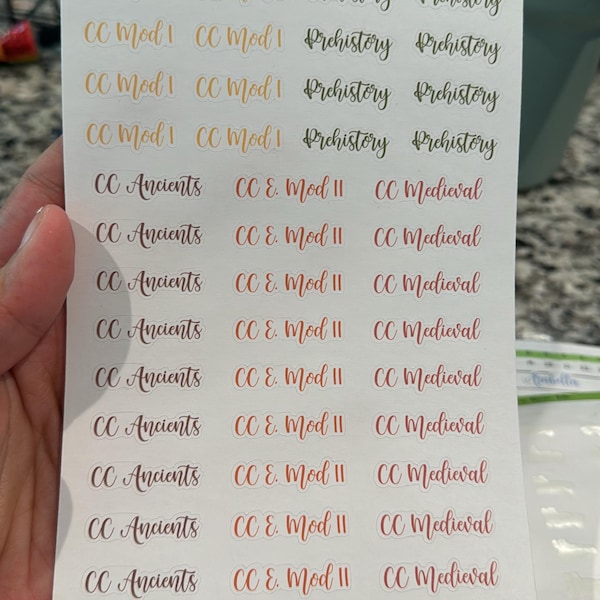 Prehistory
CC Mod I CC Mod I Prehistory Prehistory
CC Mod I CC Mod I Prehistory Prehistory
CC Mod I CC Mod I Prehistory Prehistory
CC Ancients CC E. Mod II CC Medieval
CC Ancients CC E. Mod II CC Medieval
CC Ancients CC E. Mod II CC Medieval
CC Ancients CC E. Mod II CC Medieval
CC Ancients CC E. Mod II CC Medieval
CC Ancients CC E. Mod II CC Medieval
CC Ancients CC E. Mod II CC Medieval
CC Ancients CC E. Mod II CC Medieval
CC Ancients CC E. Mod II CC Medieval